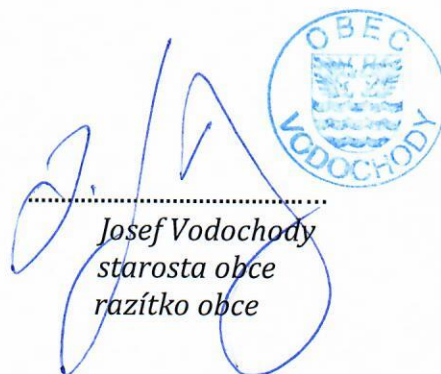 OBEC
VODOCHODY
Josef Vodochody
starosta obce
razítko obce